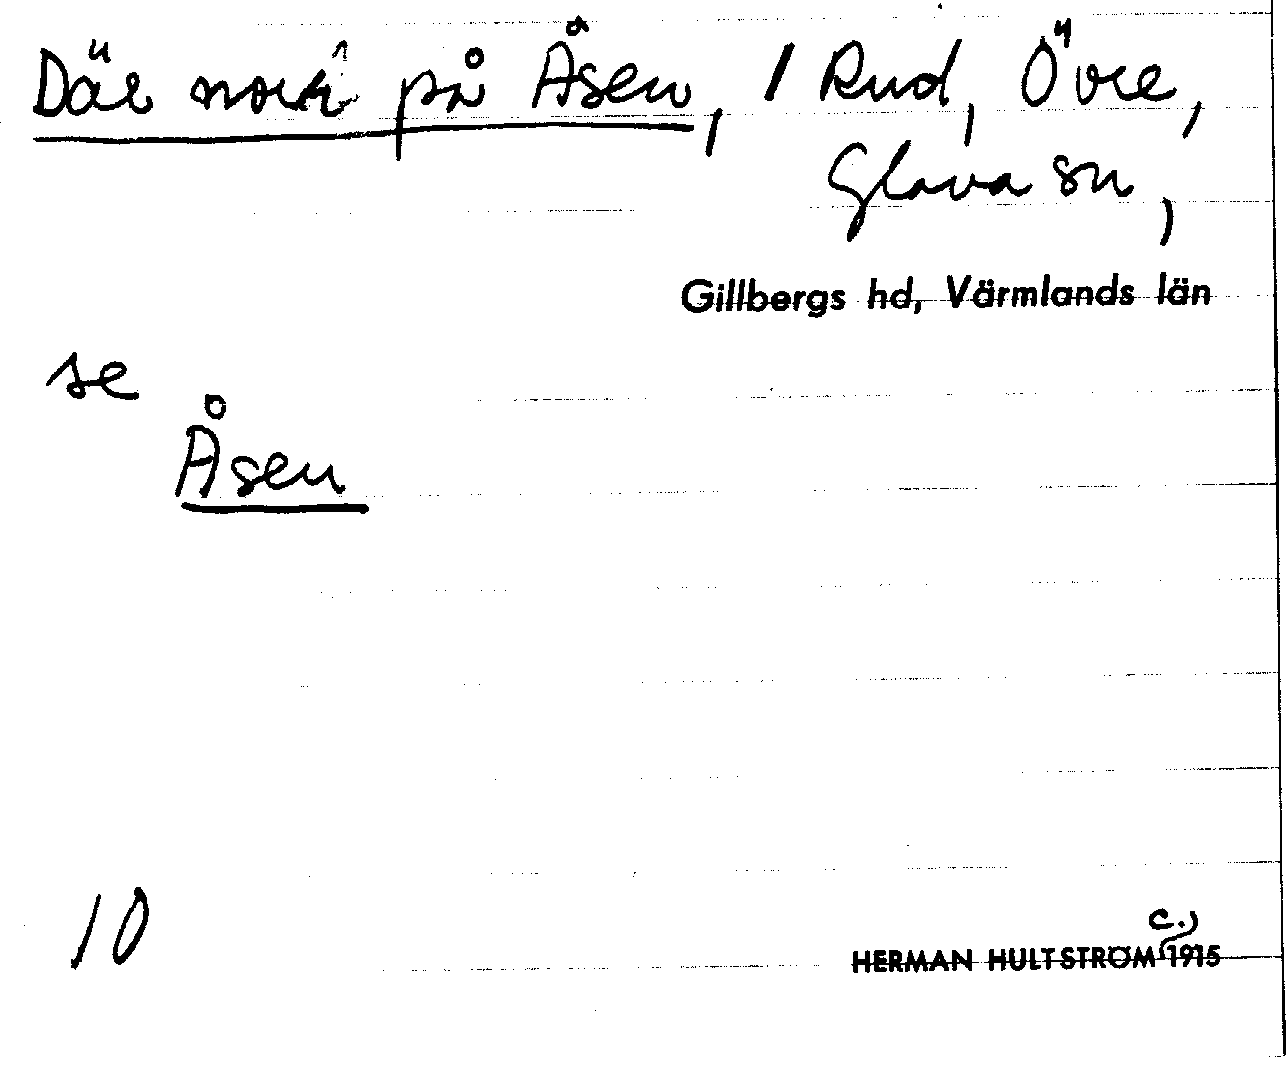 Där norr på Åsen, / Rud, Övre,
Glava sn,
Gillbergs hd, Värmlands län
se
Åsen
10
c.)
HERMAN HULTSTRÖM 1915